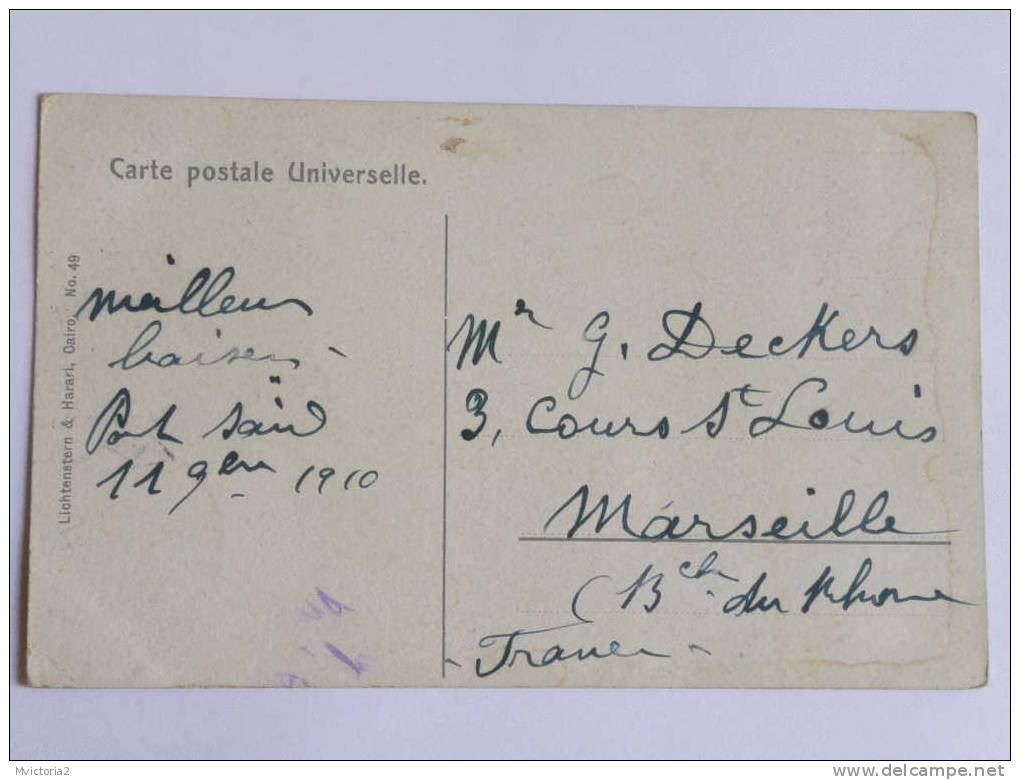 Carte postale Universelle.
Lichtenstern & Harari, Cairo, No. 49
meilleurs
baisers -
Port Saïd
11 9bre 1910
Mr G. Deckers
3, Cours St Louis
Marseille
(Bches du Rhone
- France -
Mvictoria2
www.delcampe.net